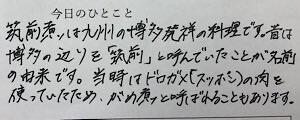 今日のひとこと
筑前煮は九州の博多発祥の料理です。昔は
博多の辺りを「筑前」と呼んでいたことが名前
の由来です。当時はドロガメ(スッポン)の肉を
使っていたため、がめ煮と呼ばれることもあります。